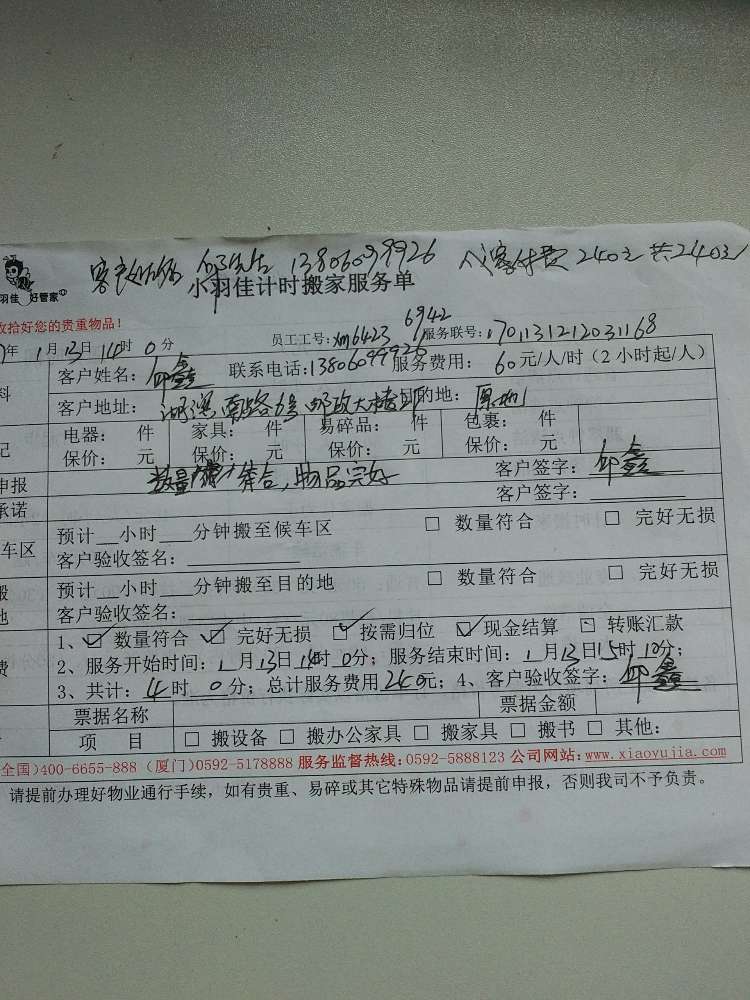 邱先生 13806099926 客付费240元 共240元
羽佳 好管家
小羽佳计时搬家服务单
收拾好您的贵重物品!
年1月13日14时0分 员工工号:xm6423 6942 服务联号:1701131212031168
客户姓名:邱鑫 联系电话:13806099926 服务费用:60元/人/时(2小时起/人)
客户地址: 南路 号邮政大楼 目的地:原地
电器: 件 家具: 件 易碎品: 件 包裹: 件
保价: 元 保价: 元 保价: 元 保价: 元
申报 数量 符合,物品完好 客户签字:邱鑫
承诺 客户签字:
车区 预计 小时 分钟搬至候车区 □ 数量符合 □ 完好无损
客户验收签名:
预计 小时 分钟搬至目的地 □ 数量符合 □ 完好无损
地 客户验收签名:
1、☑ 数量符合 ☑ 完好无损 ☑ 按需归位 ☑ 现金结算 □ 转账汇款
费 2、服务开始时间:1月13日14时0分;服务结束时间:1月13日15时10分;
3、共计:4时0分;总计服务费用240元;4、客户验收签字:邱鑫
票据名称 票据金额
项 目 □ 搬设备 □ 搬办公家具 □ 搬家具 □ 搬书 □ 其他:
全国)400-6655-888 (厦门)0592-5178888 服务监督热线:0592-5888123 公司网站:www.xiaoyujia.com
请提前办理好物业通行手续,如有贵重、易碎或其它特殊物品请提前申报,否则我司不予负责。